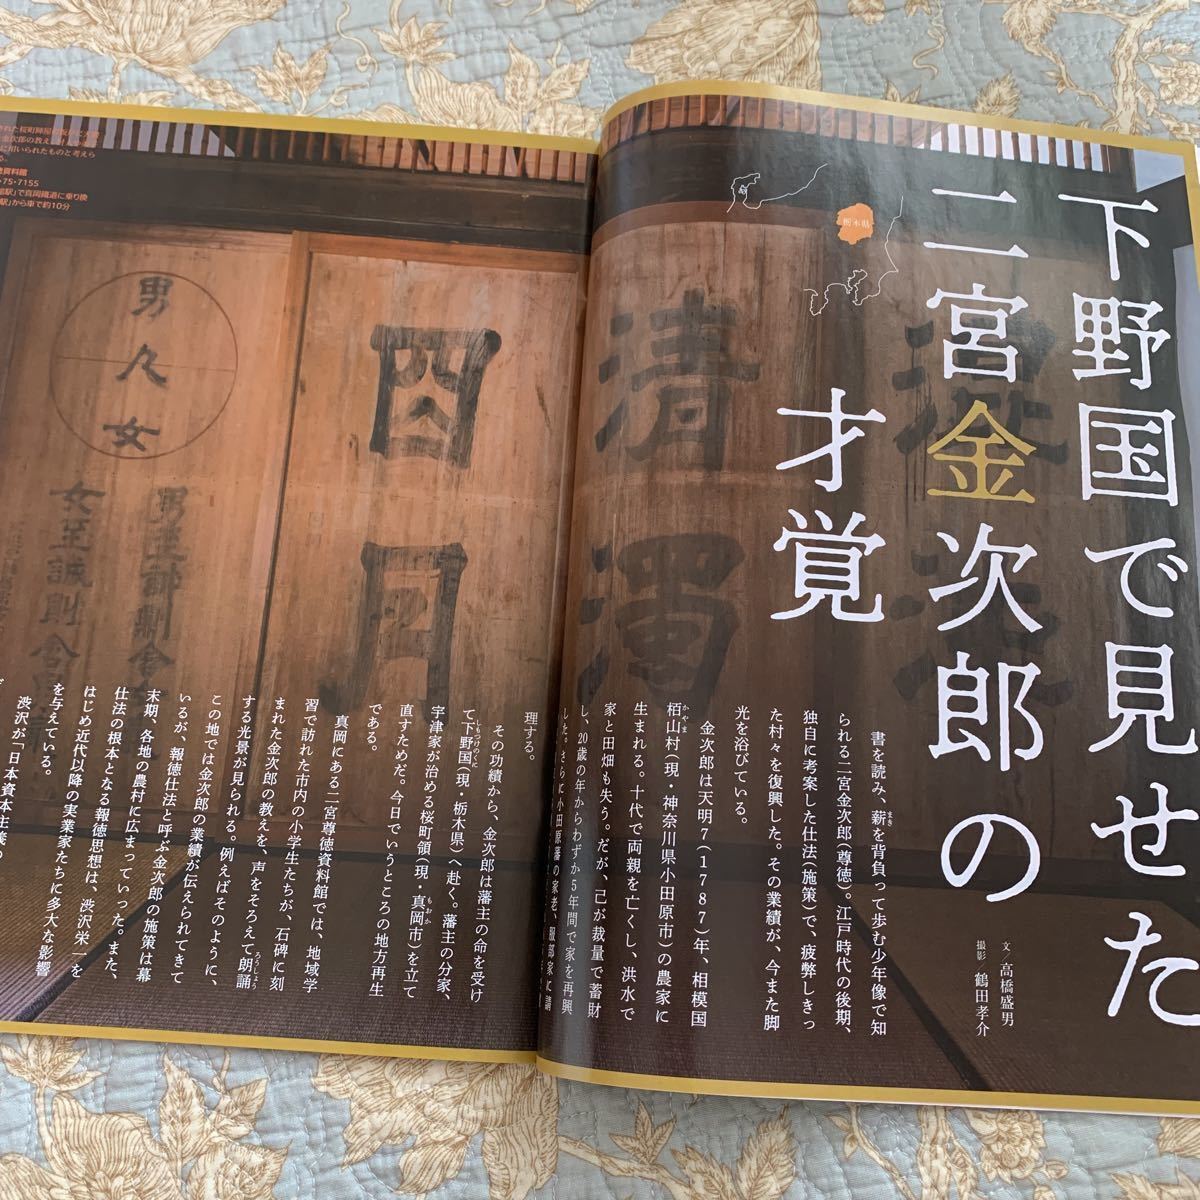 下野国で見せた
二宮金次郎の
才覚
栃木県
文/高橋盛男
撮影/鶴田孝介
書を読み、薪を背負って歩む少年像で知
られる二宮金次郎(尊徳)。江戸時代の後期、
独自に考案した仕法(施策)で、疲弊しきっ
た村々を復興した。その業績が、今また脚
光を浴びている。
金次郎は天明7(1787)年、相模国
栢山村(現・神奈川県小田原市)の農家に
生まれる。十代で両親を亡くし、洪水で
家と田畑も失う。だが、己が裁量で蓄財
し、20歳の年からわずか5年間で家を再興
した。さらに小田原藩の家老、服部家に請
理する。
その功績から、金次郎は藩主の命を受け
て下野国(現・栃木県)へ赴く。藩主の分家、
宇津家が治める桜町領(現・真岡市)を立て
直すためだ。今日でいうところの地方再生
である。
真岡にある二宮尊徳資料館では、地域学
習で訪れた市内の小学生たちが、石碑に刻
まれた金次郎の教えを、声をそろえて朗誦
する光景が見られる。例えばそのように、
この地では金次郎の業績が伝えられてきて
いるが、報徳仕法と呼ぶ金次郎の施策は幕
末期、各地の農村に広まっていった。また、
仕法の根本となる報徳思想は、渋沢栄一を
はじめ近代以降の実業家たちに多大な影響
を与えている。
渋沢が「日本資本主義の
清濁
四月
男
久
女
男至誠則
女至誠則
された桜町陣屋の
金次郎の教え
に用いられたものと考えら
る。
資料館
75・7155
駅」で真岡鐵道に乗り換
駅」から車で約10分